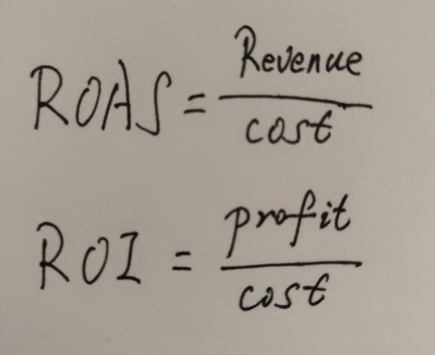 ROAS = Revenue / cost
ROI = profit / cost